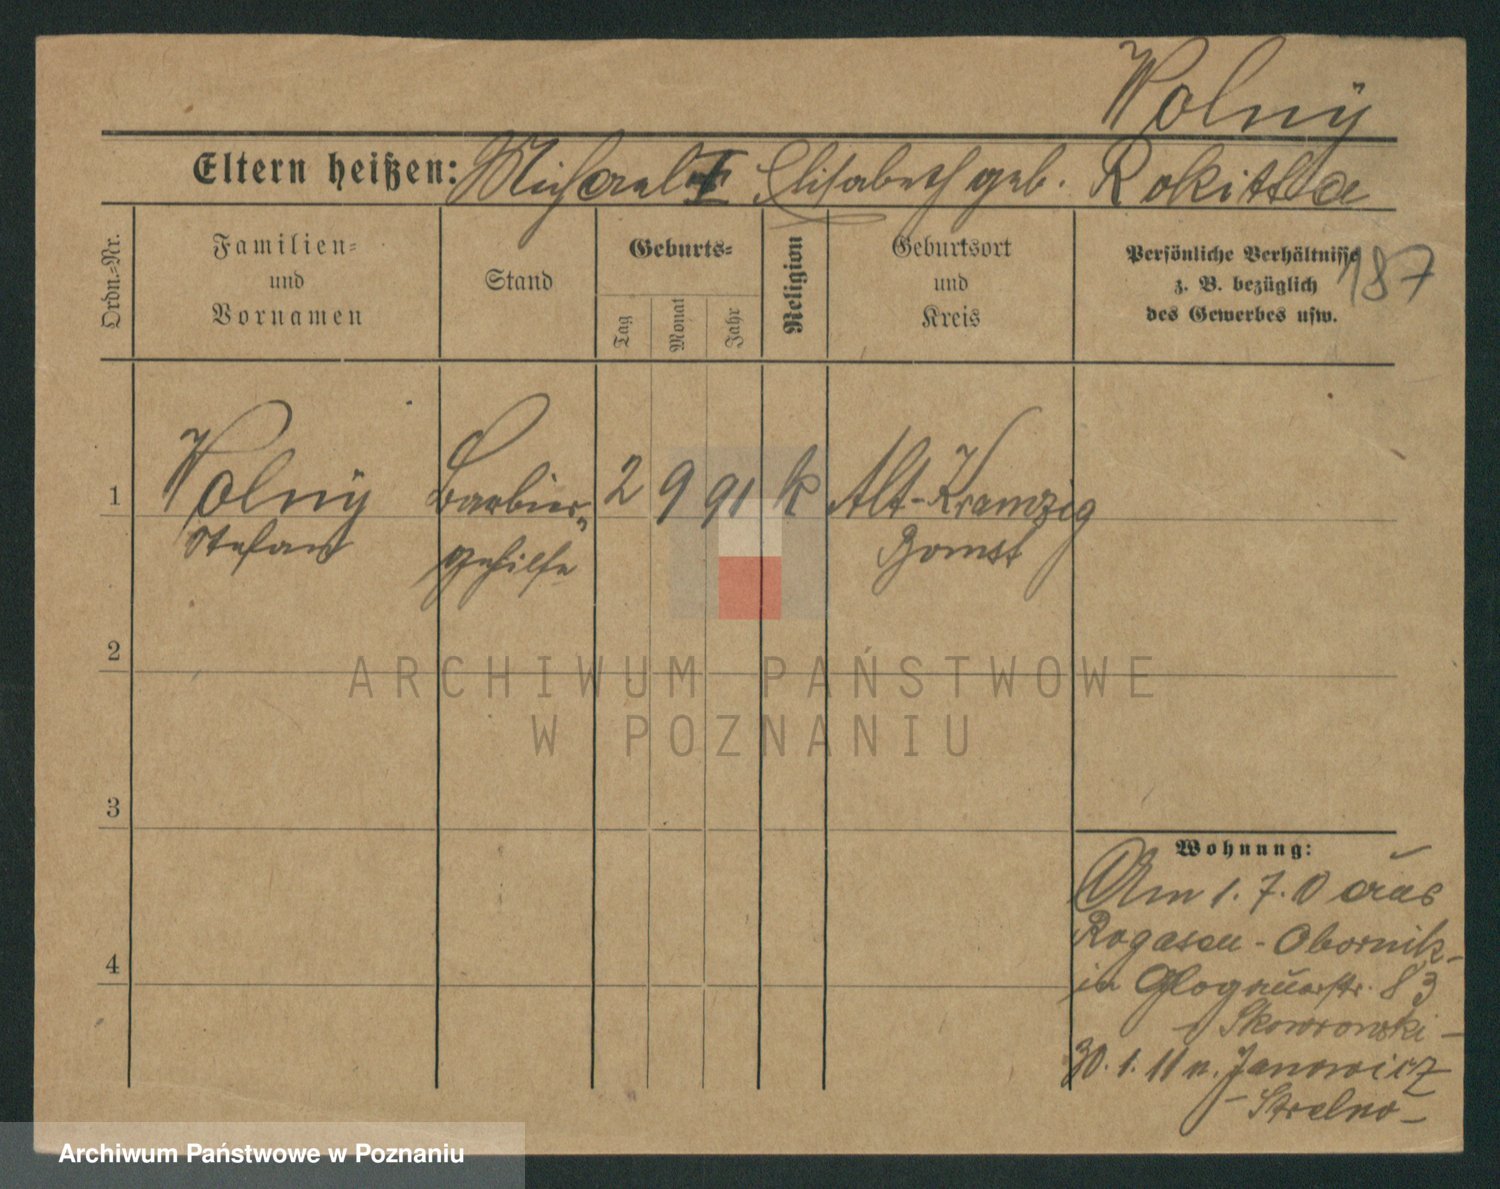 Wolnÿ
Eltern heißen: Michael Elisabeth geb. Rokitta
187
Ordn.-Nr.
Familien- und Vornamen
Stand
Geburts-
Tag
Monat
Jahr
Religion
Geburtsort und Kreis
Persönliche Verhältnisse
z. B. bezüglich
des Gewerbes usw.
1 Wolnÿ Barbier- 2 9 91 k Alt-Kramzig
Stefan gehilfe Bomst
2
3
4
Wohnung:
Am 1. 7. 0 aus
Rogasen - Obornik -
in Glogauerstr. 83
Skowronski -
30. 1. 11 n. Janowicz
- Strelno -
ARCHIWUM PAŃSTWOWE
W POZNANIU
Archiwum Państwowe w Poznaniu